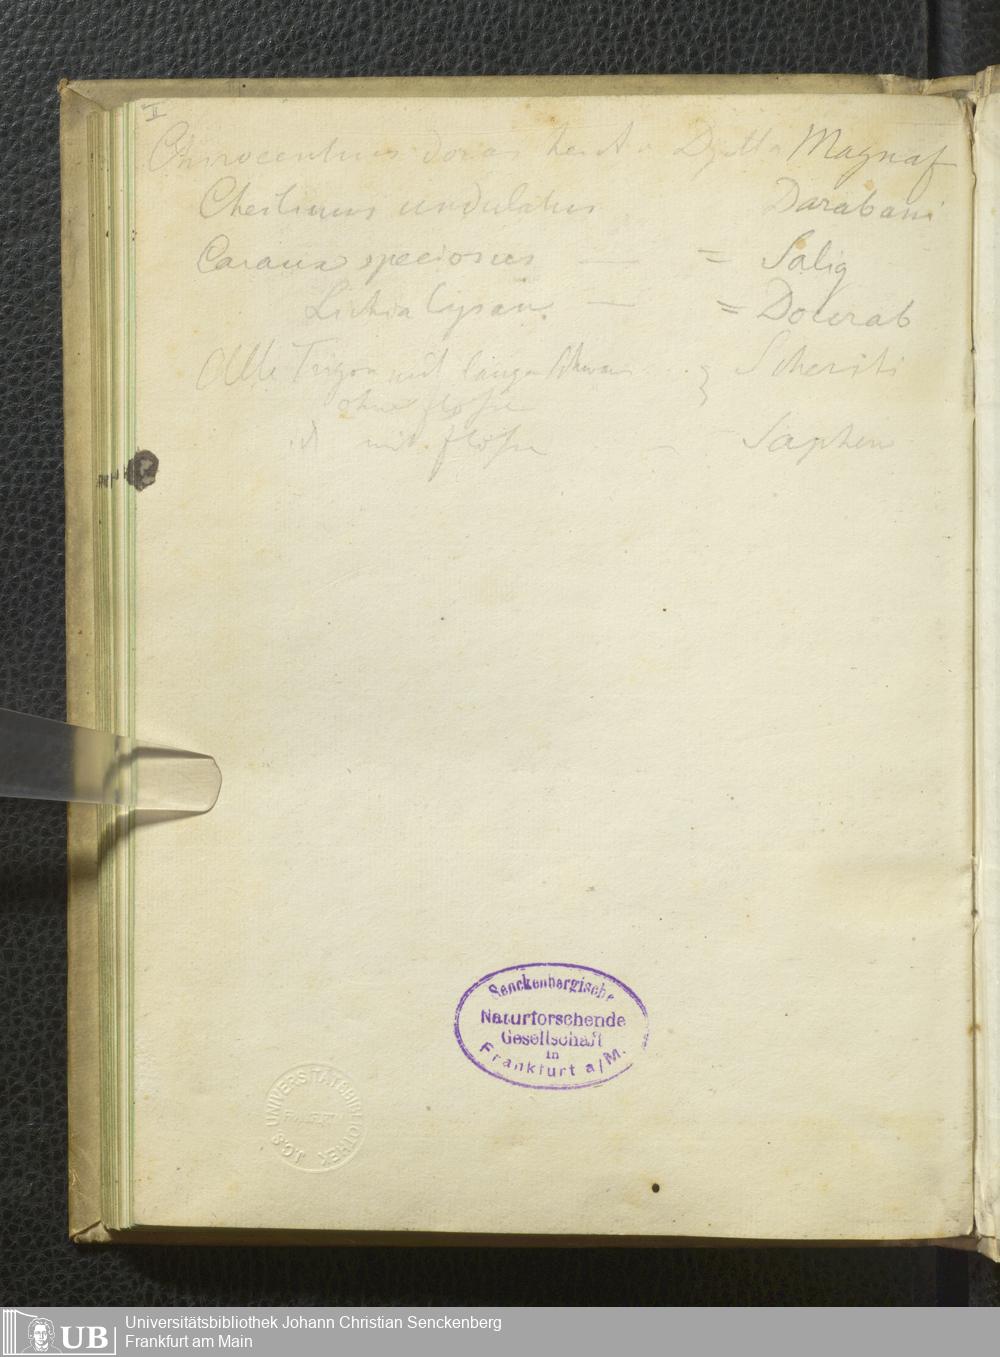 II
Chirocentrus dorab heist a Djetta Magnaf
Cheilinus undulatus Darabani
Caranx speciosus — = Salig
Lichia lysan — = Dolerab
Alle Trigon mit langen Schwanz
ohne flosse
id mit flosse — Saphen
Senckenbergische
Naturforschende
Gesellschaft
in
Frankfurt a/M.
J.C.S. UNIVERSITÄTSBIBLIOTHEK
FRANKFURT
UB
Universitätsbibliothek Johann Christian Senckenberg
Frankfurt am Main